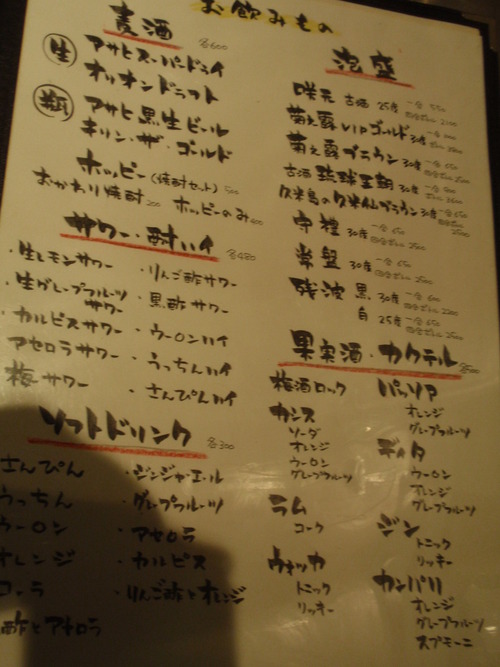 お飲みもの
麦酒 各600
生 アサヒスーパードライ
オリオンドラフト
瓶 アサヒ黒生ビール
キリン・ザ・ゴールド
ホッピー(焼酎セット) 500
おかわり焼酎 200 ホッピーのみ 400
サワー・酎ハイ 各480
・生レモンサワー
・生グレープフルーツサワー
・カルピスサワー
アセロラサワー
梅サワー
・りんご酢サワー
・黒酢サワー
・ウーロンハイ
・うっちんハイ
・さんぴんハイ
ソフトドリンク 各300
さんぴん
うっちん
ウーロン
オレンジ
コーラ
・ジンジャエール
・グレープフルーツ
・アセロラ
・カルピス
・りんご酢とオレンジ
泡盛
咲元 古酒 25度 一合 550
菊之露VIPゴールド 30度
菊之露ブラウン 30度 一合 650
古酒 琉球王朝 30度
久米島の久米仙ブラウン 30度
守禮 30度
常盤 30度
残波 黒 30度 一合 600
白 25度 一合 650
果実酒・カクテル 各500
梅酒ロック
カシス
ソーダ
オレンジ
ウーロン
グレープフルーツ
ラム
コーク
ウォッカ
トニック
リッキー
パッソア
オレンジ
グレープフルーツ
ディタ
ウーロン
オレンジ
グレープフルーツ
ジン
トニック
リッキー
カンパリ
オレンジ
グレープフルーツ
スプモーニ